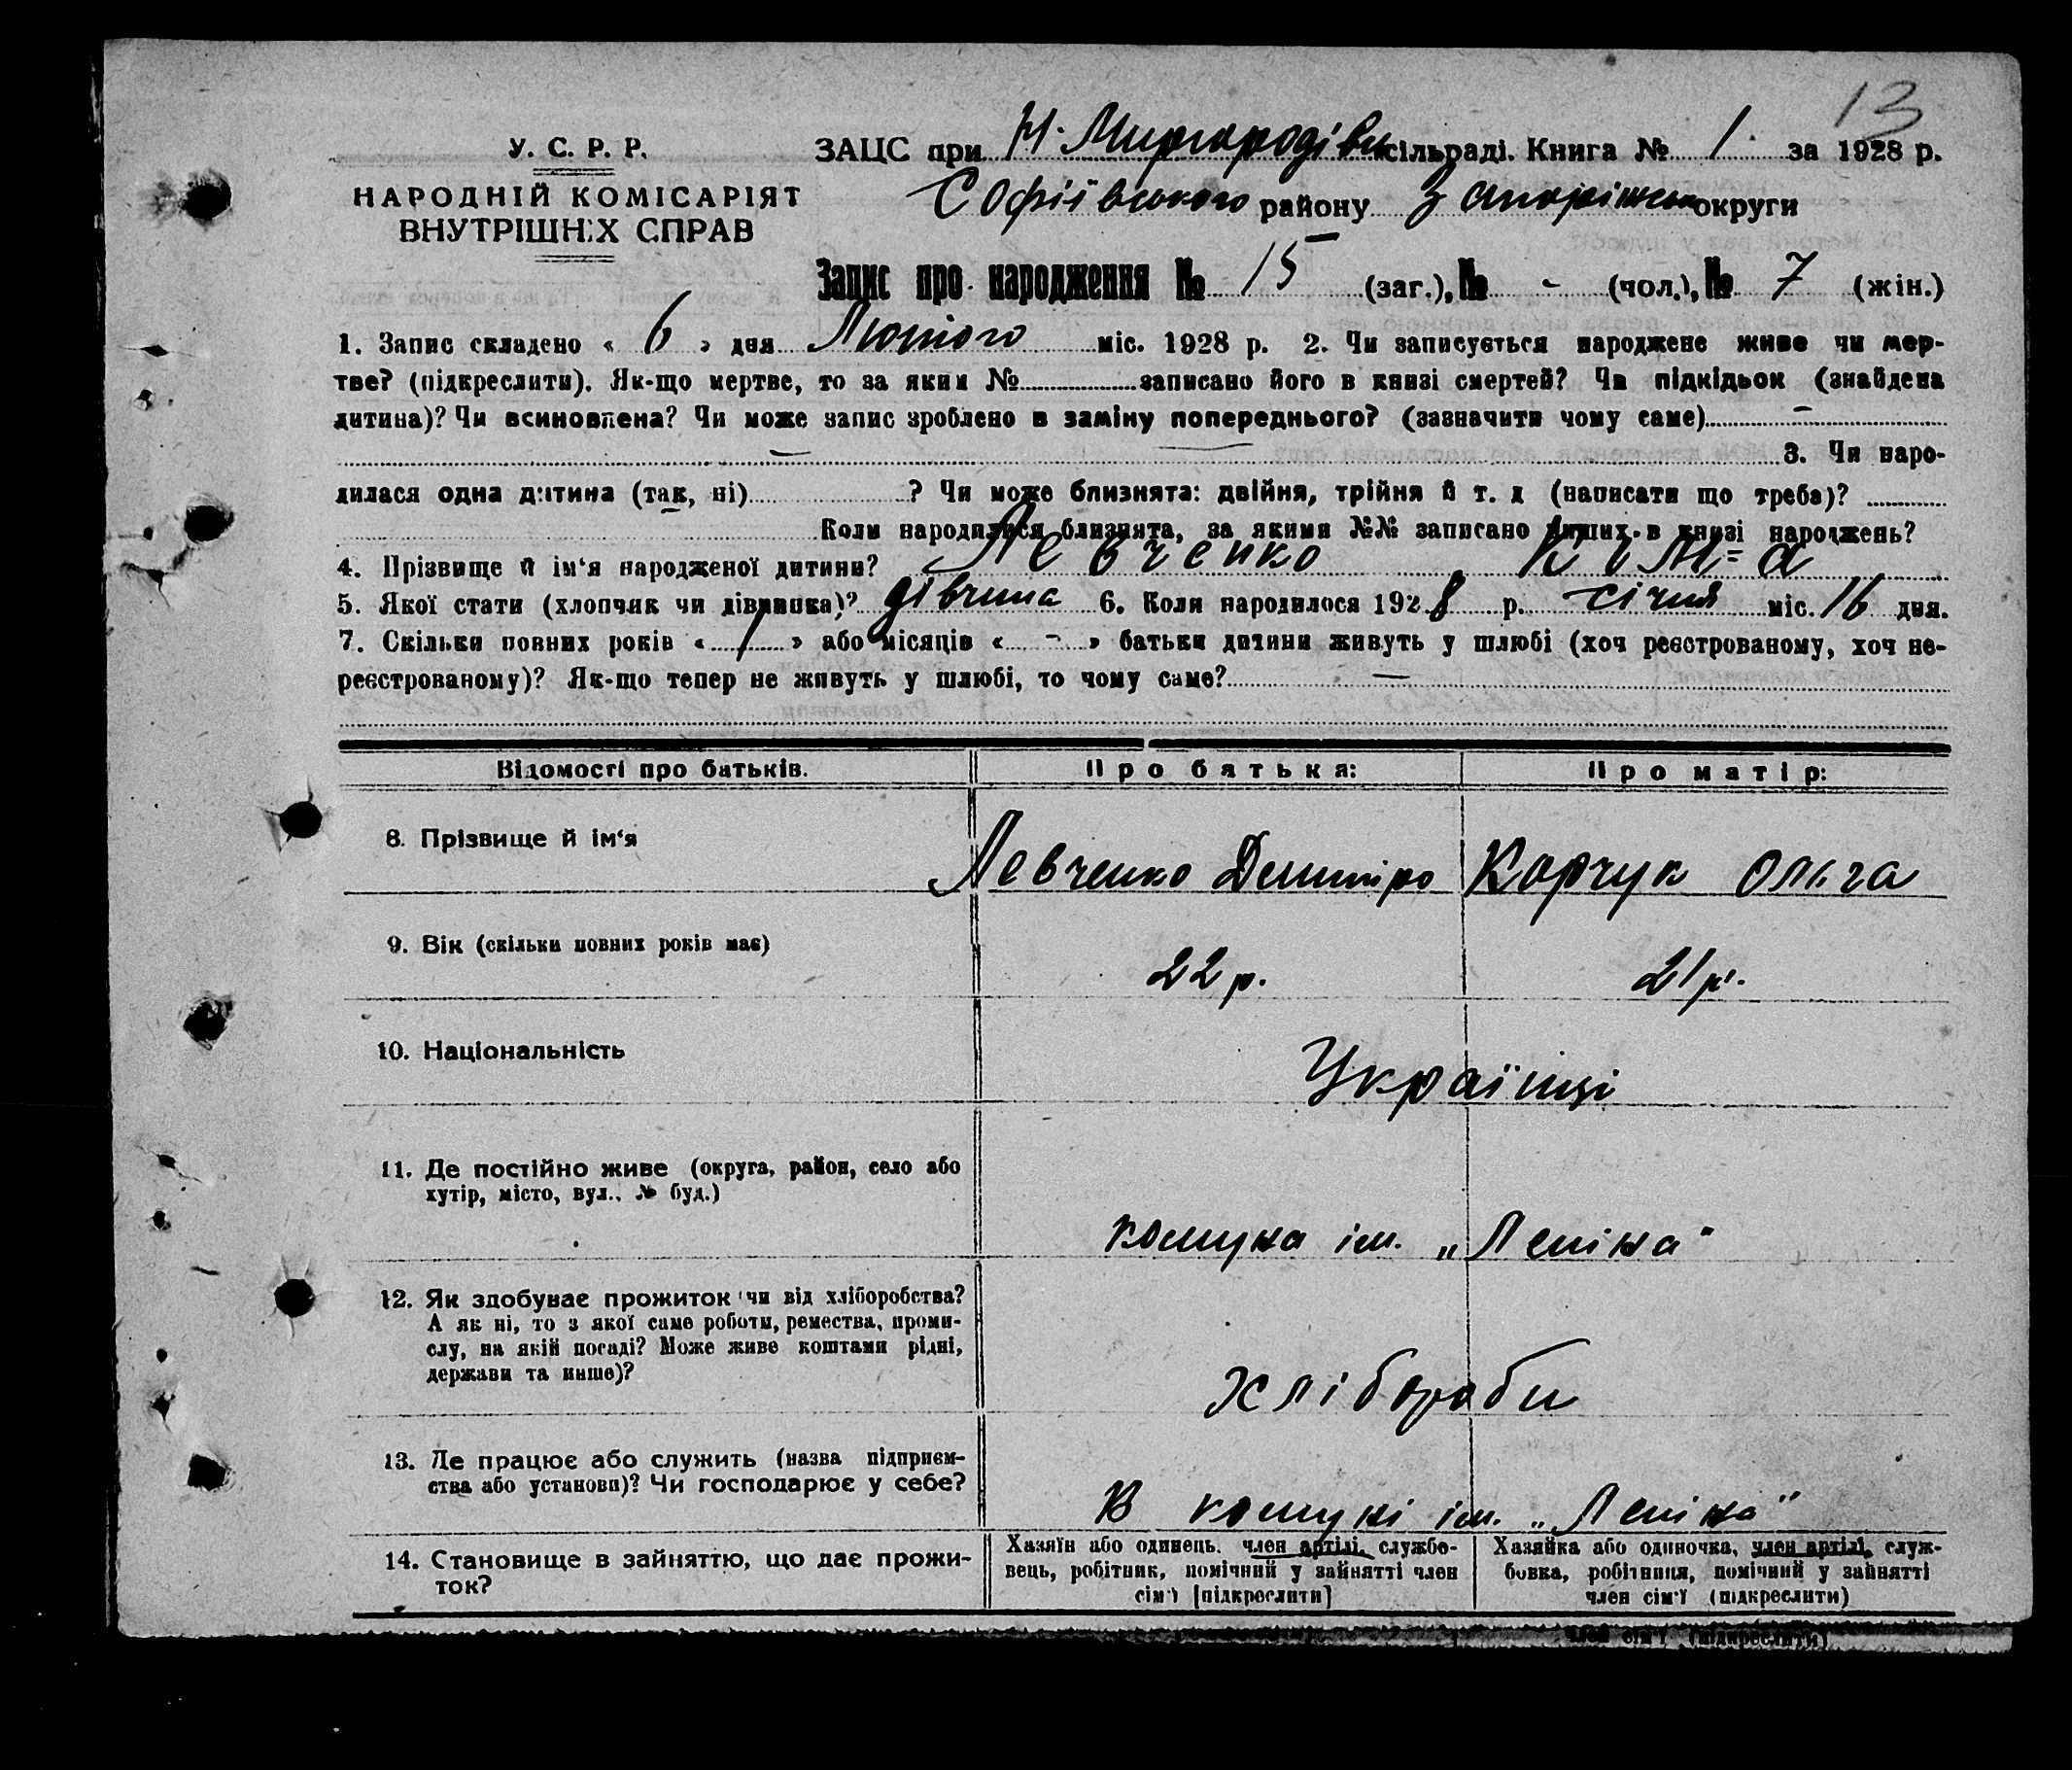 13
У. С. Р. Р.
ЗАЦС при Н. Миргородівк сільраді. Книга № 1. за 1928 р.
НАРОДНІЙ КОМІСАРІЯТ
ВНУТРІШНІХ СПРАВ
Софіївського району Запоріжськ округи
Запис про народження № 15 (заг.), № - (чол.), № 7 (жін.)
1. Запис складено « 6 » дня Лютого міс. 1928 р. 2. Чи записується народжене живе чи мер-
тве? (підкреслити). Як-що мертве, то за яким № записано його в книзі смертей? Чи підкідьок (знайдена
дитина)? Чи всиновлена? Чи може запис зроблено в заміну попереднього? (зазначити чому саме) -
— 3. Чи наро-
дилася одна дитина (так, ні) ? Чи може близнята: двійня, трійня й т. д (написати що треба)?
Коли народилися близнята, за якими №№ записано инших в книзі народжень?
4. Прізвище й ім‘я народженої дитини? Левченко Кім-а
5. Якої стати (хлопчик чи дівчинка)? дівчина 6. Коли народилося 1928 р. січня міс. 16 дня.
7. Скільки повних років « 1 » або місяців « - » батьки дитини живуть у шлюбі (хоч реєстрованому, хоч не-
реєстрованому)? Як-що тепер не живуть у шлюбі, то чому саме? —
Відомості про батьків. Про батька: Про матір:
8. Прізвище й ім‘я Левченко Дмитро Корчук Ольга
9. Вік (скільки повних років має) 22 р. 21 р.
10. Національність Українці
11. Де постійно живе (округа, район, село або
хутір, місто, вул., № буд.)
комуна ім. „Леніна"
12. Як здобуває прожиток (чи від хліборобства?
А як ні, то з якої саме роботи, ремества, проми-
слу, на якій посаді? Може живе коштами рідні,
держави та инше)?
Хлібороби
13. Де працює або служить (назва підприєм-
ства або установи)? Чи господарює у себе?
В комуні ім. „Леніна"
14. Становище в зайняттю, що дає прожи-
ток?
Хазяїн або одинець, член артілі, службо-
вець, робітник, помічний у зайнятті член
сім'ї [підкреслити]
Хазяйка або одиночка, член артілі, служ-
бовка, робітниця, помічний у зайнятті
член сім'ї (підкреслити)
член сім'ї (підкреслити)